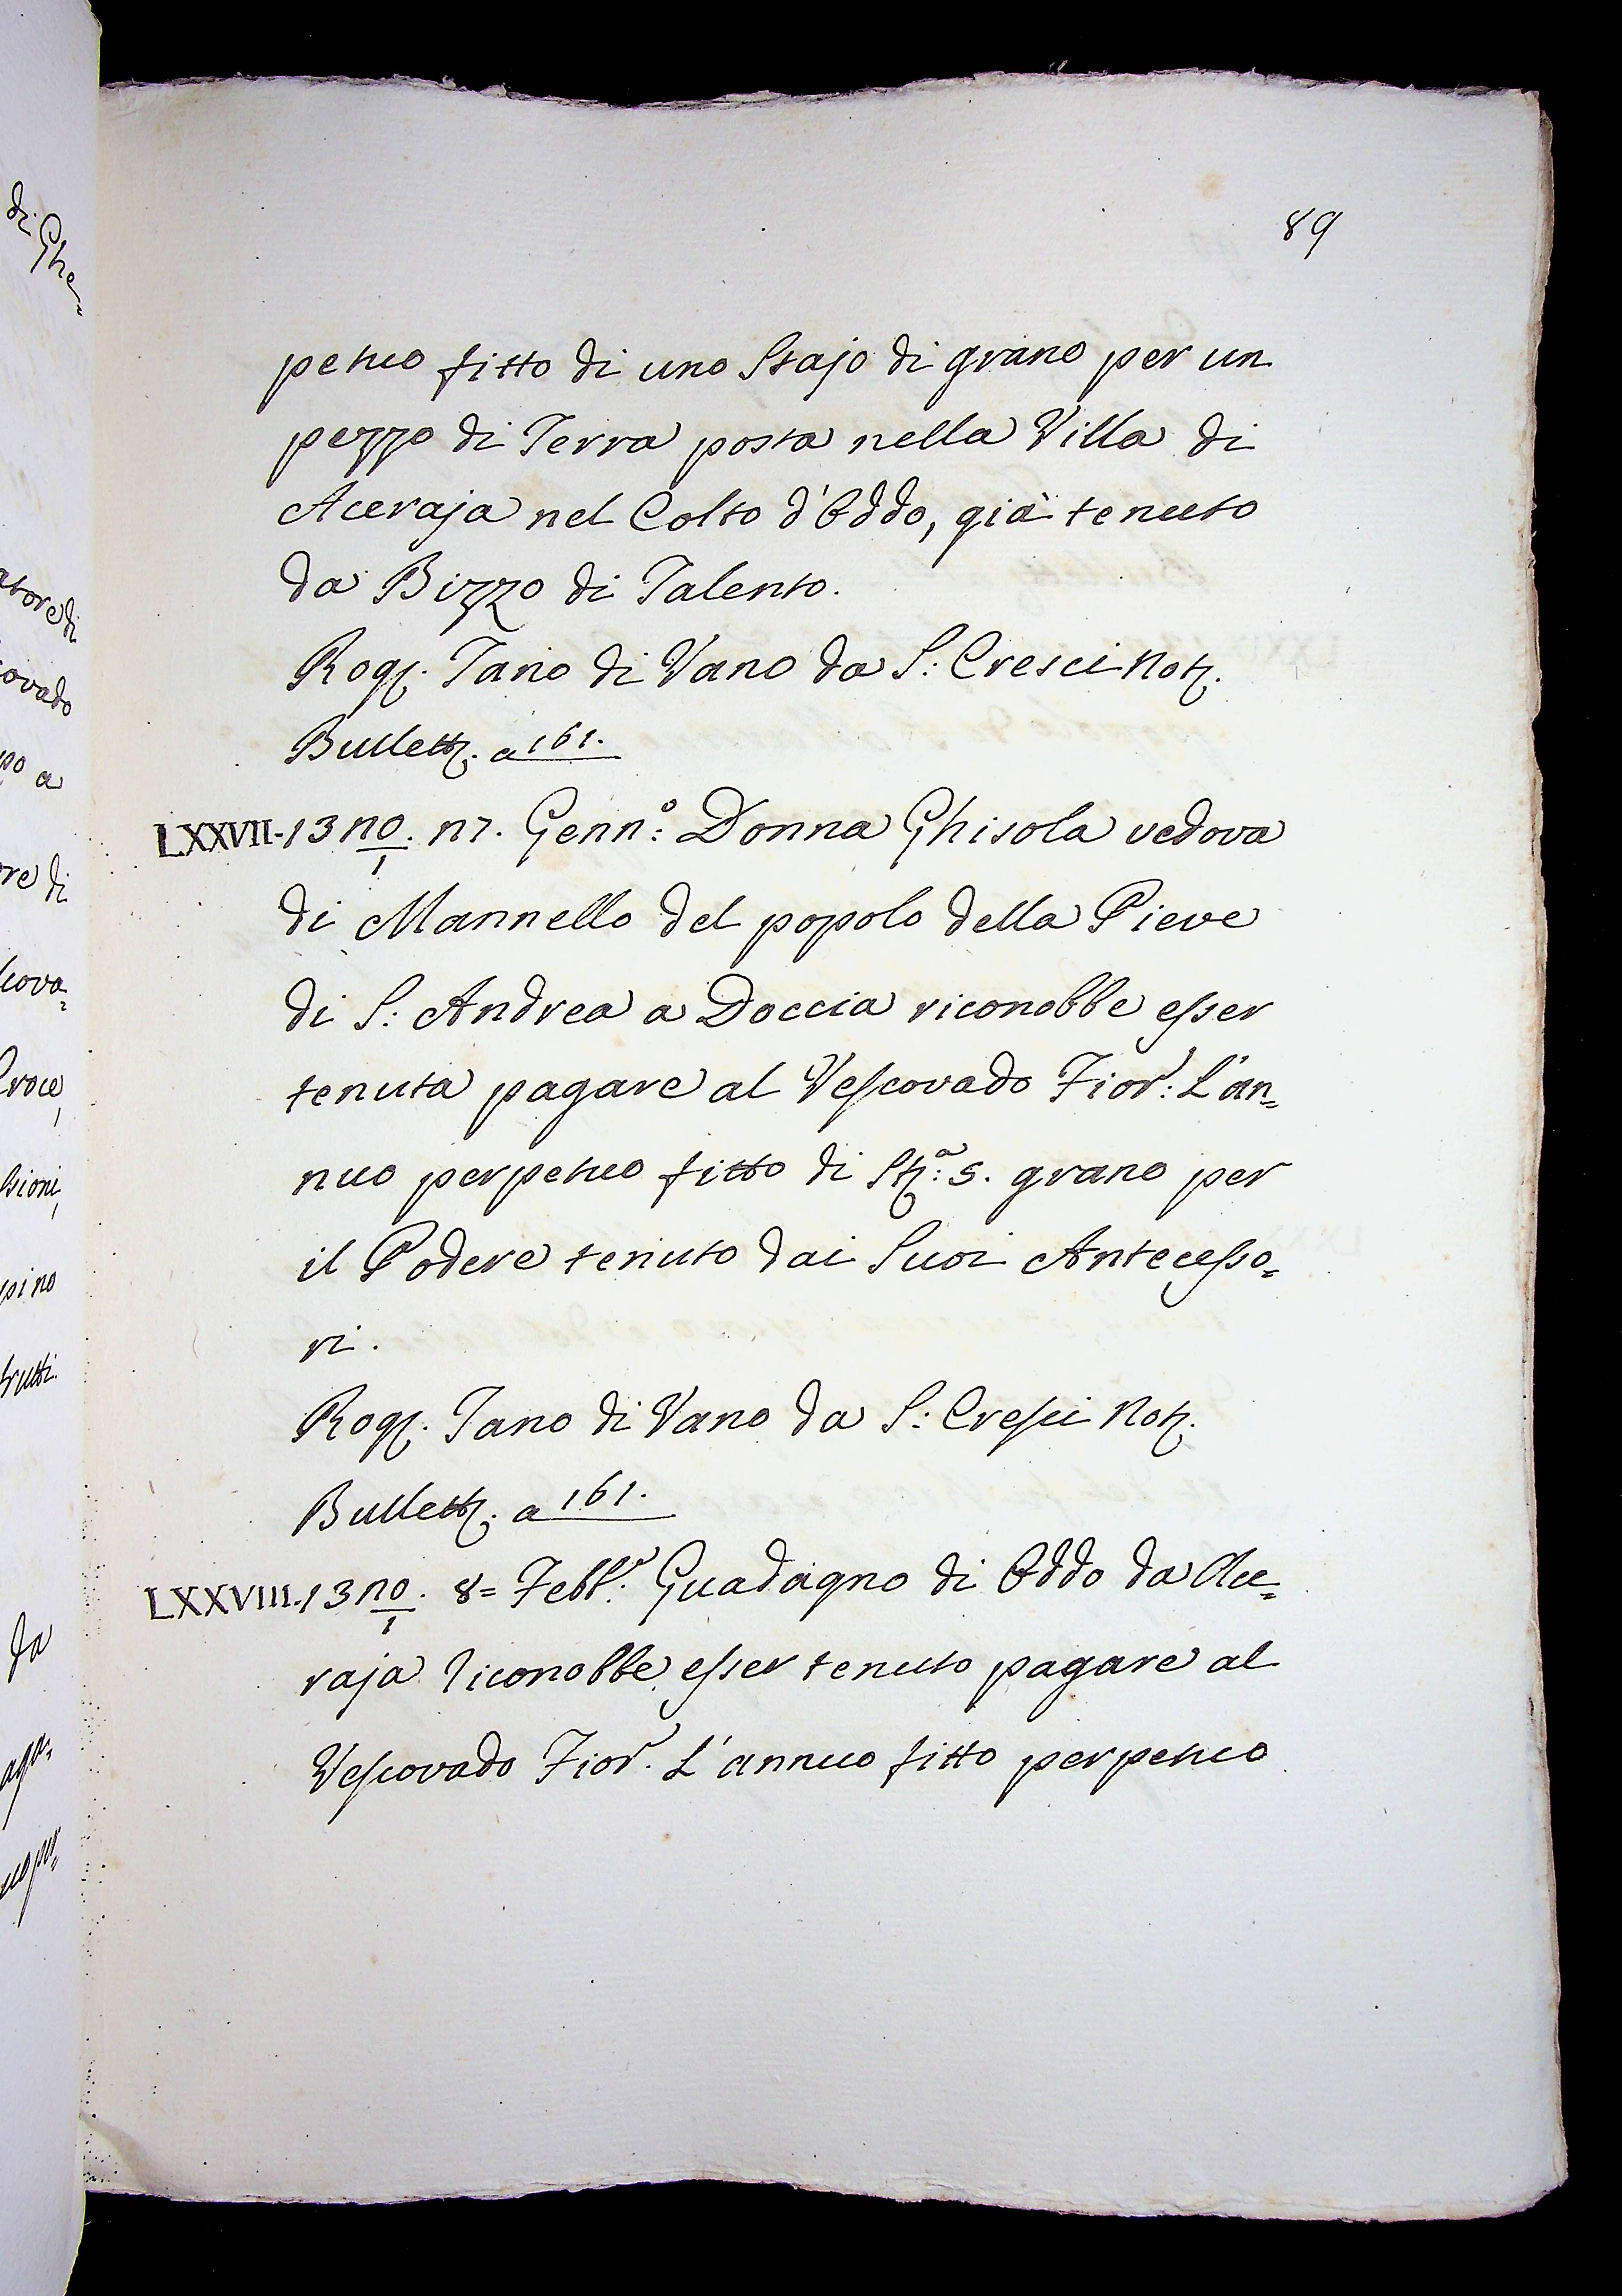 89
petuo fitto di uno Stajo di grano per un
pezzo di Terra posta nella Villa di
Aceraja nel Colto d'Oddo, già tenuto
da Bizzo di Talento.
Rog. Tano di Vano da S: Cresci Not.
Bullett. a 161.
LXXVII. 13 . 17. Genn.º: Donna Ghisola vedova
di Mannello del popolo della Pieve
di S: Andrea a Doccia riconobbe esser
tenuta pagare al Vescovado Fior: L'an=
nuo perpetuo fitto di St.ª: 5. grano per
il Podere tenuto dai Suoi Antecesso=
ri.
Rog. Tano di Vano da S: Cresci Not.
Bullett. a 161.
LXXVIII. 13 . 8= Febb.º: Guadagno di Oddo da Ace=
raja riconobbe esser tenuto pagare al
Vescovado Fior. L'annuo fitto perpetuo
di Ghe=
vado
po a
re di
scova=
Croce,
sioni,
pino
frutti.
da
aga=